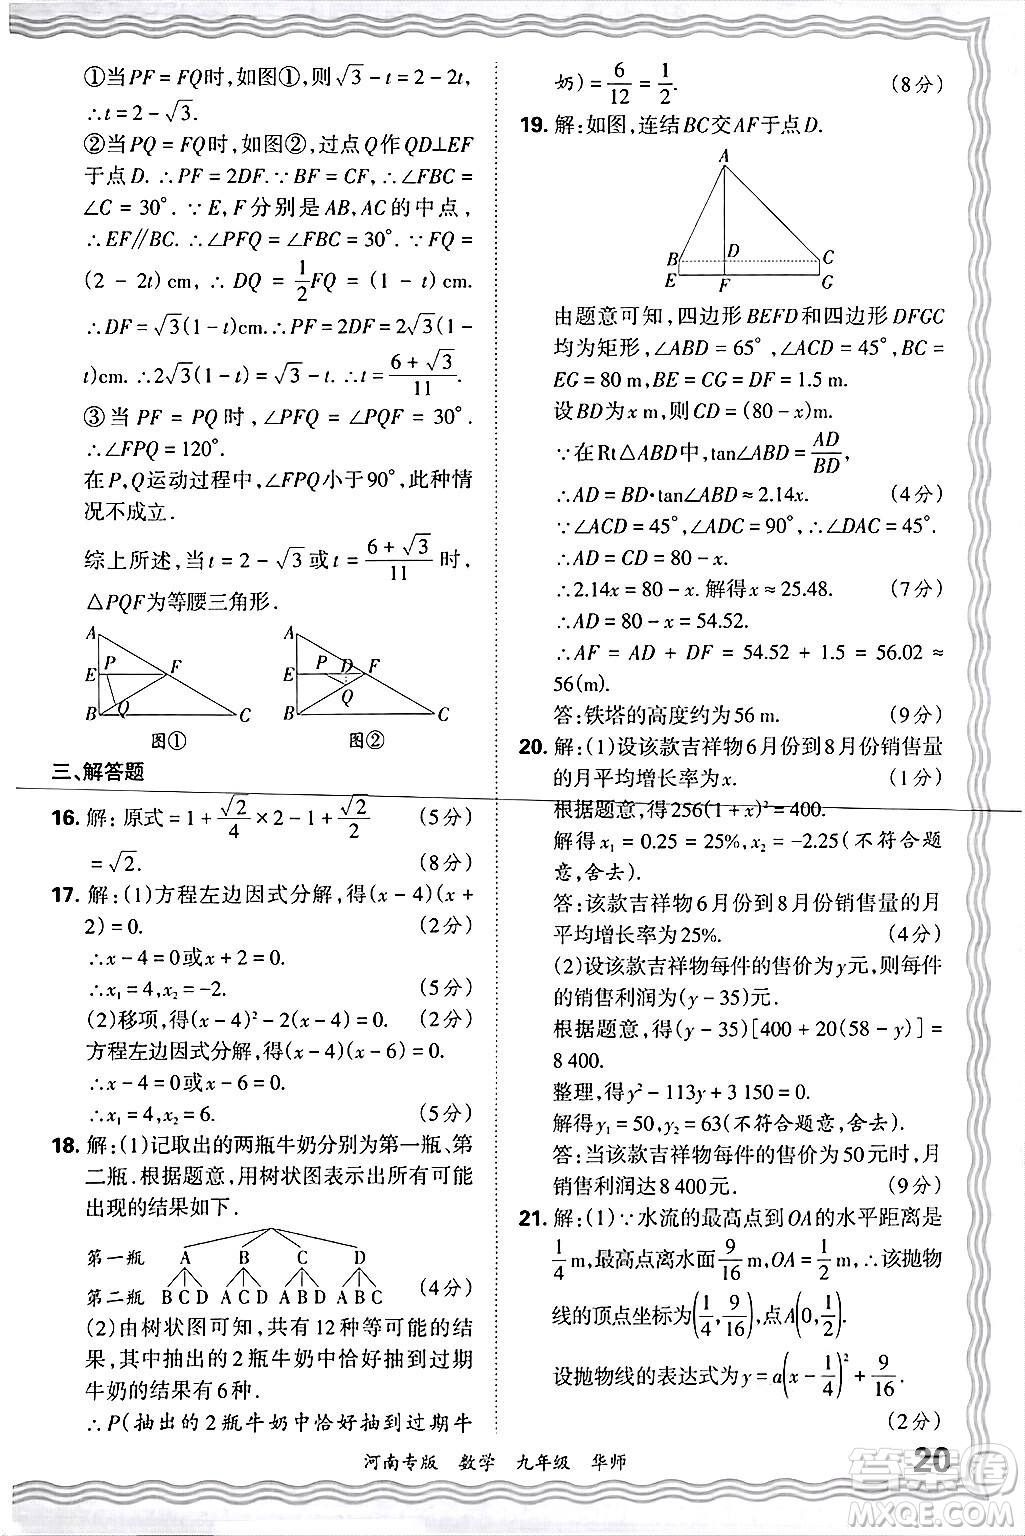 ①当PF = FQ时,如图①,则√3 - t = 2 - 2t,
∴t = 2 - √3.
②当PQ = FQ时,如图②,过点Q作QD⊥EF
于点D. ∴PF = 2DF. ∵BF = CF, ∴∠FBC =
∠C = 30°. ∵E,F分别是AB,AC的中点,
∴EF∥BC. ∴∠PFQ = ∠FBC = 30°. ∵FQ =
(2 - 2t) cm, ∴DQ = 1/2 FQ = (1 - t) cm.
∴DF = √3(1 - t)cm. ∴PF = 2DF = 2√3(1 -
t)cm. ∴2√3(1 - t) = √3 - t. ∴t = (6 + √3)/11.
③当 PF = PQ时,∠PFQ = ∠PQF = 30°.
∴∠FPQ = 120°.
在P,Q运动过程中,∠FPQ小于90°,此种情
况不成立.
综上所述,当t = 2 - √3或t = (6 + √3)/11时,
△PQF为等腰三角形.
A E P F B Q C
图①
A E P D F Q B C
图②
三、解答题
16. 解: 原式 = 1 + √2/4 × 2 - 1 + √2/2 (5分)
= √2. (8分)
17. 解:(1)方程左边因式分解,得(x - 4)(x +
2) = 0. (2分)
∴x - 4 = 0或x + 2 = 0.
∴x₁ = 4,x₂ = -2. (5分)
(2)移项,得(x - 4)² - 2(x - 4) = 0. (2分)
方程左边因式分解,得(x - 4)(x - 6) = 0.
∴x - 4 = 0或x - 6 = 0.
∴x₁ = 4,x₂ = 6. (5分)
18. 解:(1)记取出的两瓶牛奶分别为第一瓶、第
二瓶. 根据题意,用树状图表示出所有可能
出现的结果如下.
第一瓶 A B C D
第二瓶 B C D A C D A B D A B C (4分)
(2)由树状图可知,共有12种等可能的结
果,其中抽出的2瓶牛奶中恰好抽到过期
牛奶的结果有6种.
∴P(抽出的2瓶牛奶中恰好抽到过期牛
奶) = 6/12 = 1/2. (8分)
19. 解:如图,连结BC交AF于点D.
A B D C E F G
由题意可知,四边形BEFD和四边形DFGC
均为矩形,∠ABD = 65°,∠ACD = 45°,BC =
EG = 80 m,BE = CG = DF = 1.5 m.
设BD为x m,则CD = (80 - x)m.
∵在Rt△ABD中,tan∠ABD = AD/BD,
∴AD = BD·tan∠ABD ≈ 2.14x. (4分)
∵∠ACD = 45°,∠ADC = 90°,∴∠DAC = 45°.
∴AD = CD = 80 - x.
∴2.14x = 80 - x. 解得x ≈ 25.48. (7分)
∴AD = 80 - x = 54.52.
∴AF = AD + DF = 54.52 + 1.5 = 56.02 ≈
56(m).
答:铁塔的高度约为56 m. (9分)
20. 解:(1)设该款吉祥物6月份到8月份销售量
的月平均增长率为x. (1分)
根据题意,得256(1 + x)² = 400.
解得x₁ = 0.25 = 25%,x₂ = -2.25(不符合题
意,舍去).
答:该款吉祥物6月份到8月份销售量的月
平均增长率为25%. (4分)
(2)设该款吉祥物每件的售价为y元,则每件
的销售利润为(y - 35)元.
根据题意,得(y - 35)[400 + 20(58 - y)] =
8 400.
整理,得y² - 113y + 3 150 = 0.
解得y₁ = 50,y₂ = 63(不符合题意,舍去).
答:当该款吉祥物每件的售价为50元时,月
销售利润达8 400元. (9分)
21. 解:(1)∵水流的最高点到OA的水平距离是
1/4 m,最高点离水面9/16 m,OA = 1/2 m,∴该抛物
线的顶点坐标为(1/4, 9/16),点A(0, 1/2).
设抛物线的表达式为y = a(x - 1/4)² + 9/16.
(2分)
河南专版 数学 九年级 华师
20
答案圈
MXQE.COM